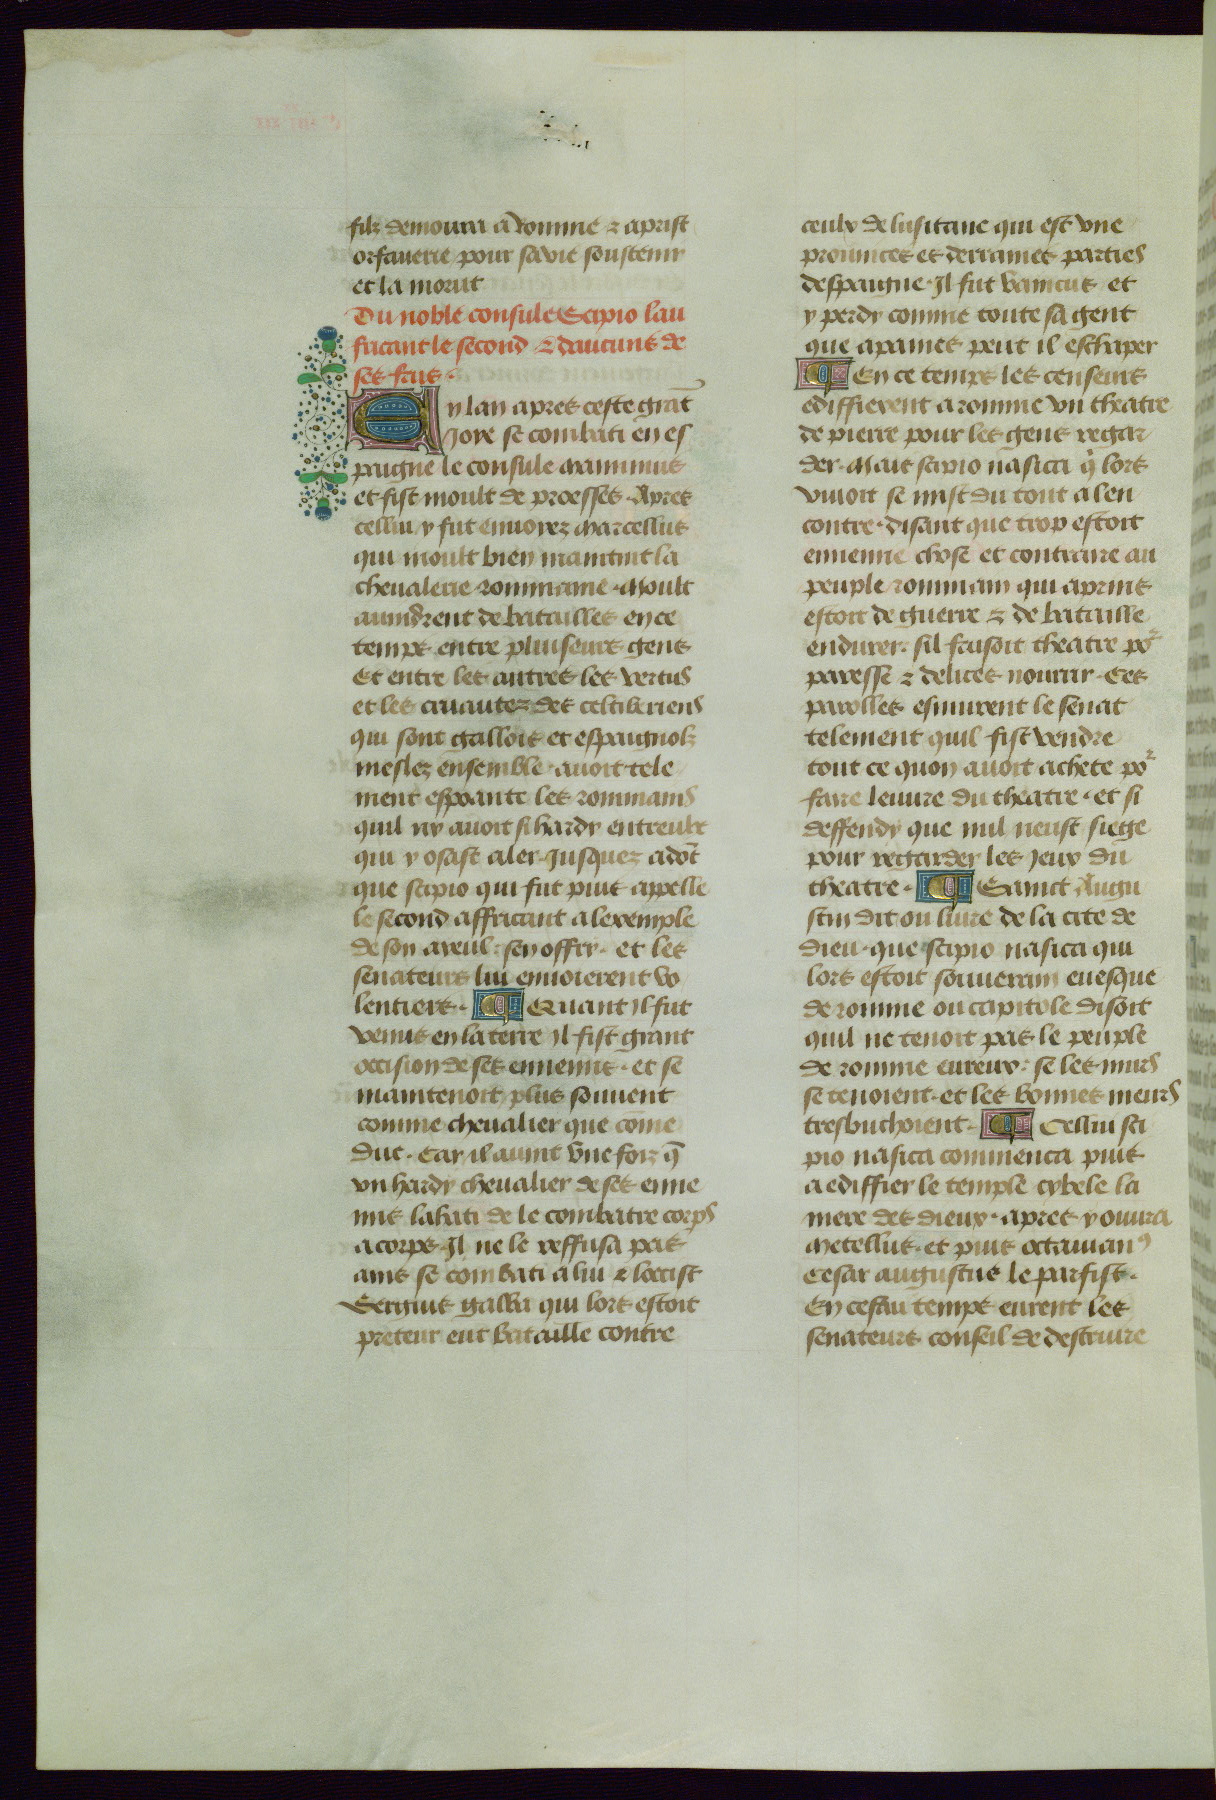 filz demoura a romme & aprist
orfauerie pour sa vie soustenir
et la morut
Du noble consule Scipio lau
fricant le second & daucuns de
ses fais
En lan apres ceste grāt
Joye se combati en es
paigne le consule Mammius
et fist moult de proesses. Apres
cellui y fut enuoyez Marcellus
qui moult bien maintint la
cheualerie rommaine. Moult
auindrent de batailles en ce
temps entre pluiseurs gens
Et entre les autres les vertus
et les cruautez des celtiberiens
qui sont gallois et espaignolz
meslez ensemble. auoit tele
ment espoante les rommains
quil ny auoit si hardy entreulx
qui y osast aler Jusquez adōt
que scipio qui fut puis appelle
le second affricant a lexemple
de son ayeul: sey offry. et les
senateurs lui enuoierent vo
lentiers. ¶ Quant il fut
venus en la terre Il fist grant
occision de ses ennemis. et se
maintenoit plus souuent
comme cheualier que cōme
duc. Car il auint vne foiz q̄
vn hardy cheualier de ses enne
mis lahati de le combatre corps
a corps. Il ne le reffusa pas
ains se combati a lui & loccist
Sergius galba qui lors estoit
preteur eut bataille contre
ceulx de lusitane qui est vne
prouinces et derraines parties
despaigne. Il fut vaincus et
y perdy comme toute sa gent
que a paines peut il eschaper
¶ En ce temps les censeurs
ediffierent a romme vn theatre
de pierre pour les gens regar
der. Mais scipio nasica q̇ lors
viuoit se mist du tout a len
contre. disant que trop estoit
ennemie chose et contraire au
peuple rommain qui aprins
estoit de guerre & de bataille
endurer. sil faisoit theatre poʳ
paresse & delices nourrir. Ces
parolles esmurent le senat
telement quil fist vendre
tout ce quon auoit achete poʳ
faire leuure du theatre. et si
deffendy que nul neust siege
pour regarder les Jeux du
theatre. ¶ Sainct Augu
stin dit ou liure de la cite de
dieu. que scipio nasica qui
lors estoit souuerain euesque
de romme ou capitole disoit
quil ne tenoit pas le peuple
de romme eureux: se les murs
se tenoient. et les bonnes meurs
tresbuchoient. ¶ Cellui sci
pio nasica commenca puis
a ediffier le temple cybele la
mere des dieux. apres y ouura
Metellus. et puis octauianꝰ
Cesar augustus le parfist.
En cestui temps eurent les
senateurs conseil de destruire